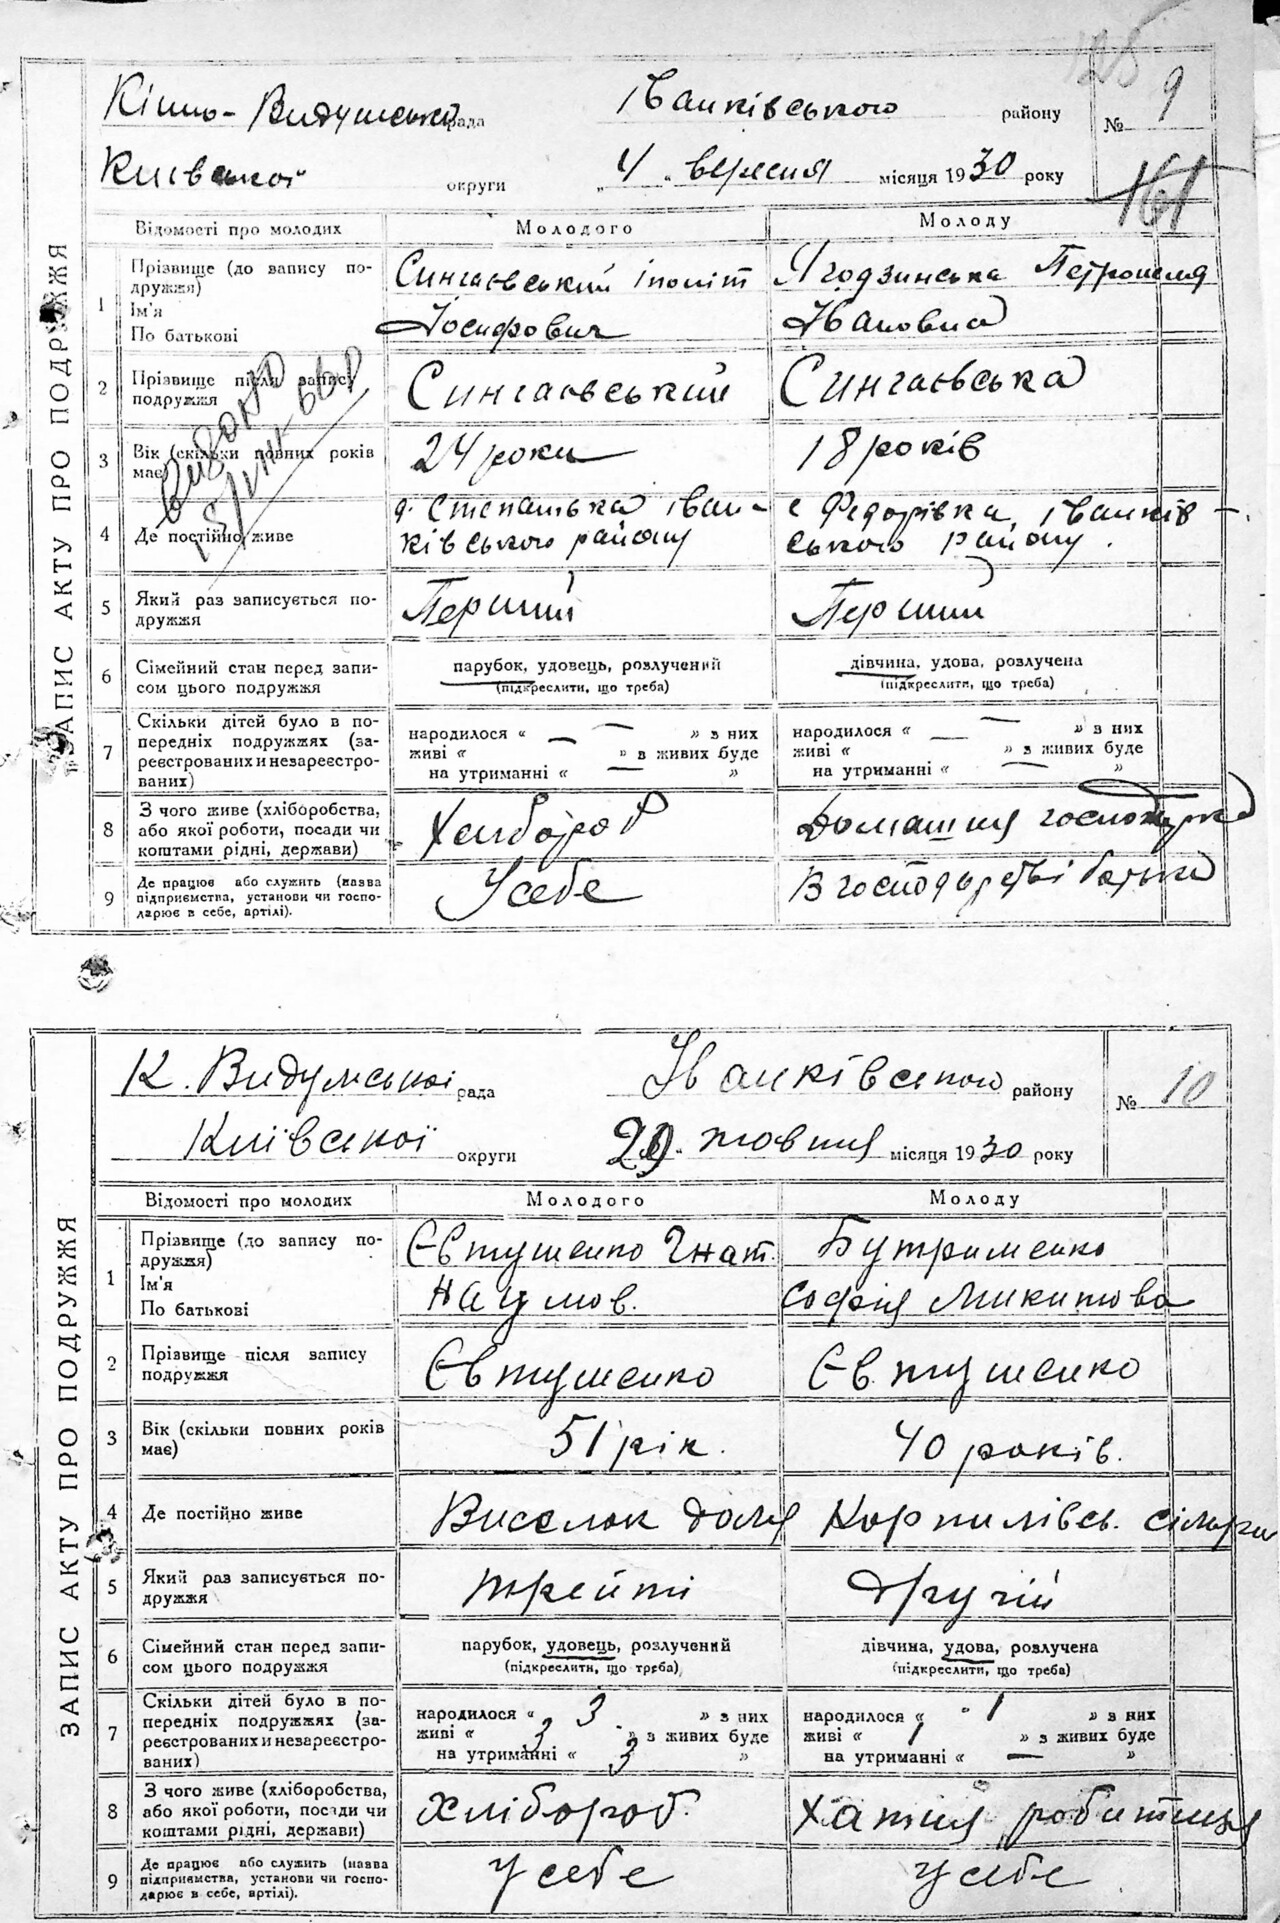 125
Кішно-Видумська рада Іванківського району № 9
Київської округи „4„ вересня місяця 1930 року
161
ЗАПИС АКТУ ПРО ПОДРУЖЖЯ
Відомості про молодих Молодого Молоду
1 Прізвище (до запису подружжя) Сингаєвський Іполіт Ягодзинська Петронеля
Ім'я
По батькові Йосифович Івановна
2 Прізвище після запису подружжя Сингаєвський Сингаєвська
3 Вік (скільки повних років має) 24 роки 18 років
4 Де постійно живе д. Степанівка Іван- с Федорівка, Іванків-
ківського району ського району.
5 Який раз записується по-
дружжя Перший Перший
6 Сімейний стан перед запи- парубок, удовець, розлучений дівчина, удова, розлучена
сом цього подружжя (підкреслити, що треба) (підкреслити, що треба)
7 Скільки дітей було в по- народилося « — » з них народилося « — » з них
передніх подружжях (за- живі « — » з живих буде живі « — » з живих буде
реєстрованих и незареєстро- на утриманні « — » на утриманні « — »
ваних)
8 З чого живе (хліборобства, Хлибороб Домашня господарка
або якої роботи, посади чи
коштами рідні, держави)
9 Де працює або служить (назва У себе В господарстві батька
підприємства, установи чи госпо-
дарює в себе, артілі).
К. Видумської рада Іванківського району № 10
Київської округи 29. жовтня місяця 1930 року
ЗАПИС АКТУ ПРО ПОДРУЖЖЯ
Відомості про молодих Молодого Молоду
1 Прізвище (до запису по- Євтушенко Гнат. Бутрименко
дружжя)
Ім'я Наумов. Софія Микитова
По батькові
2 Прізвище після запису Євтушенко Євтушенко
подружжя
3 Вік (скільки повних років 51 рік. 40 років.
має)
4 Де постійно живе Виселок Корнилівсь.
5 Який раз записується по- трейті другій
дружжя
6 Сімейний стан перед запи- парубок, удовець, розлучений дівчина, удова, розлучена
сом цього подружжя (підкреслити, що треба) (підкреслити, що треба)
7 Скільки дітей було в по- народилося « 3 » з них народилося « 1 » з них
передніх подружжях (за- живі « 3 » з живих буде живі « 1 » з живих буде
реєстрованих и незареєстро- на утриманні « 3 » на утриманні « — »
ваних)
8 З чого живе (хліборобства, Хлібороб. Хатня робитниця
або якої роботи, посади чи
коштами рідні, держави)
9 Де працює або служить (назва У себе У себе
підприємства, установи чи госпо-
дарює в себе, артілі).